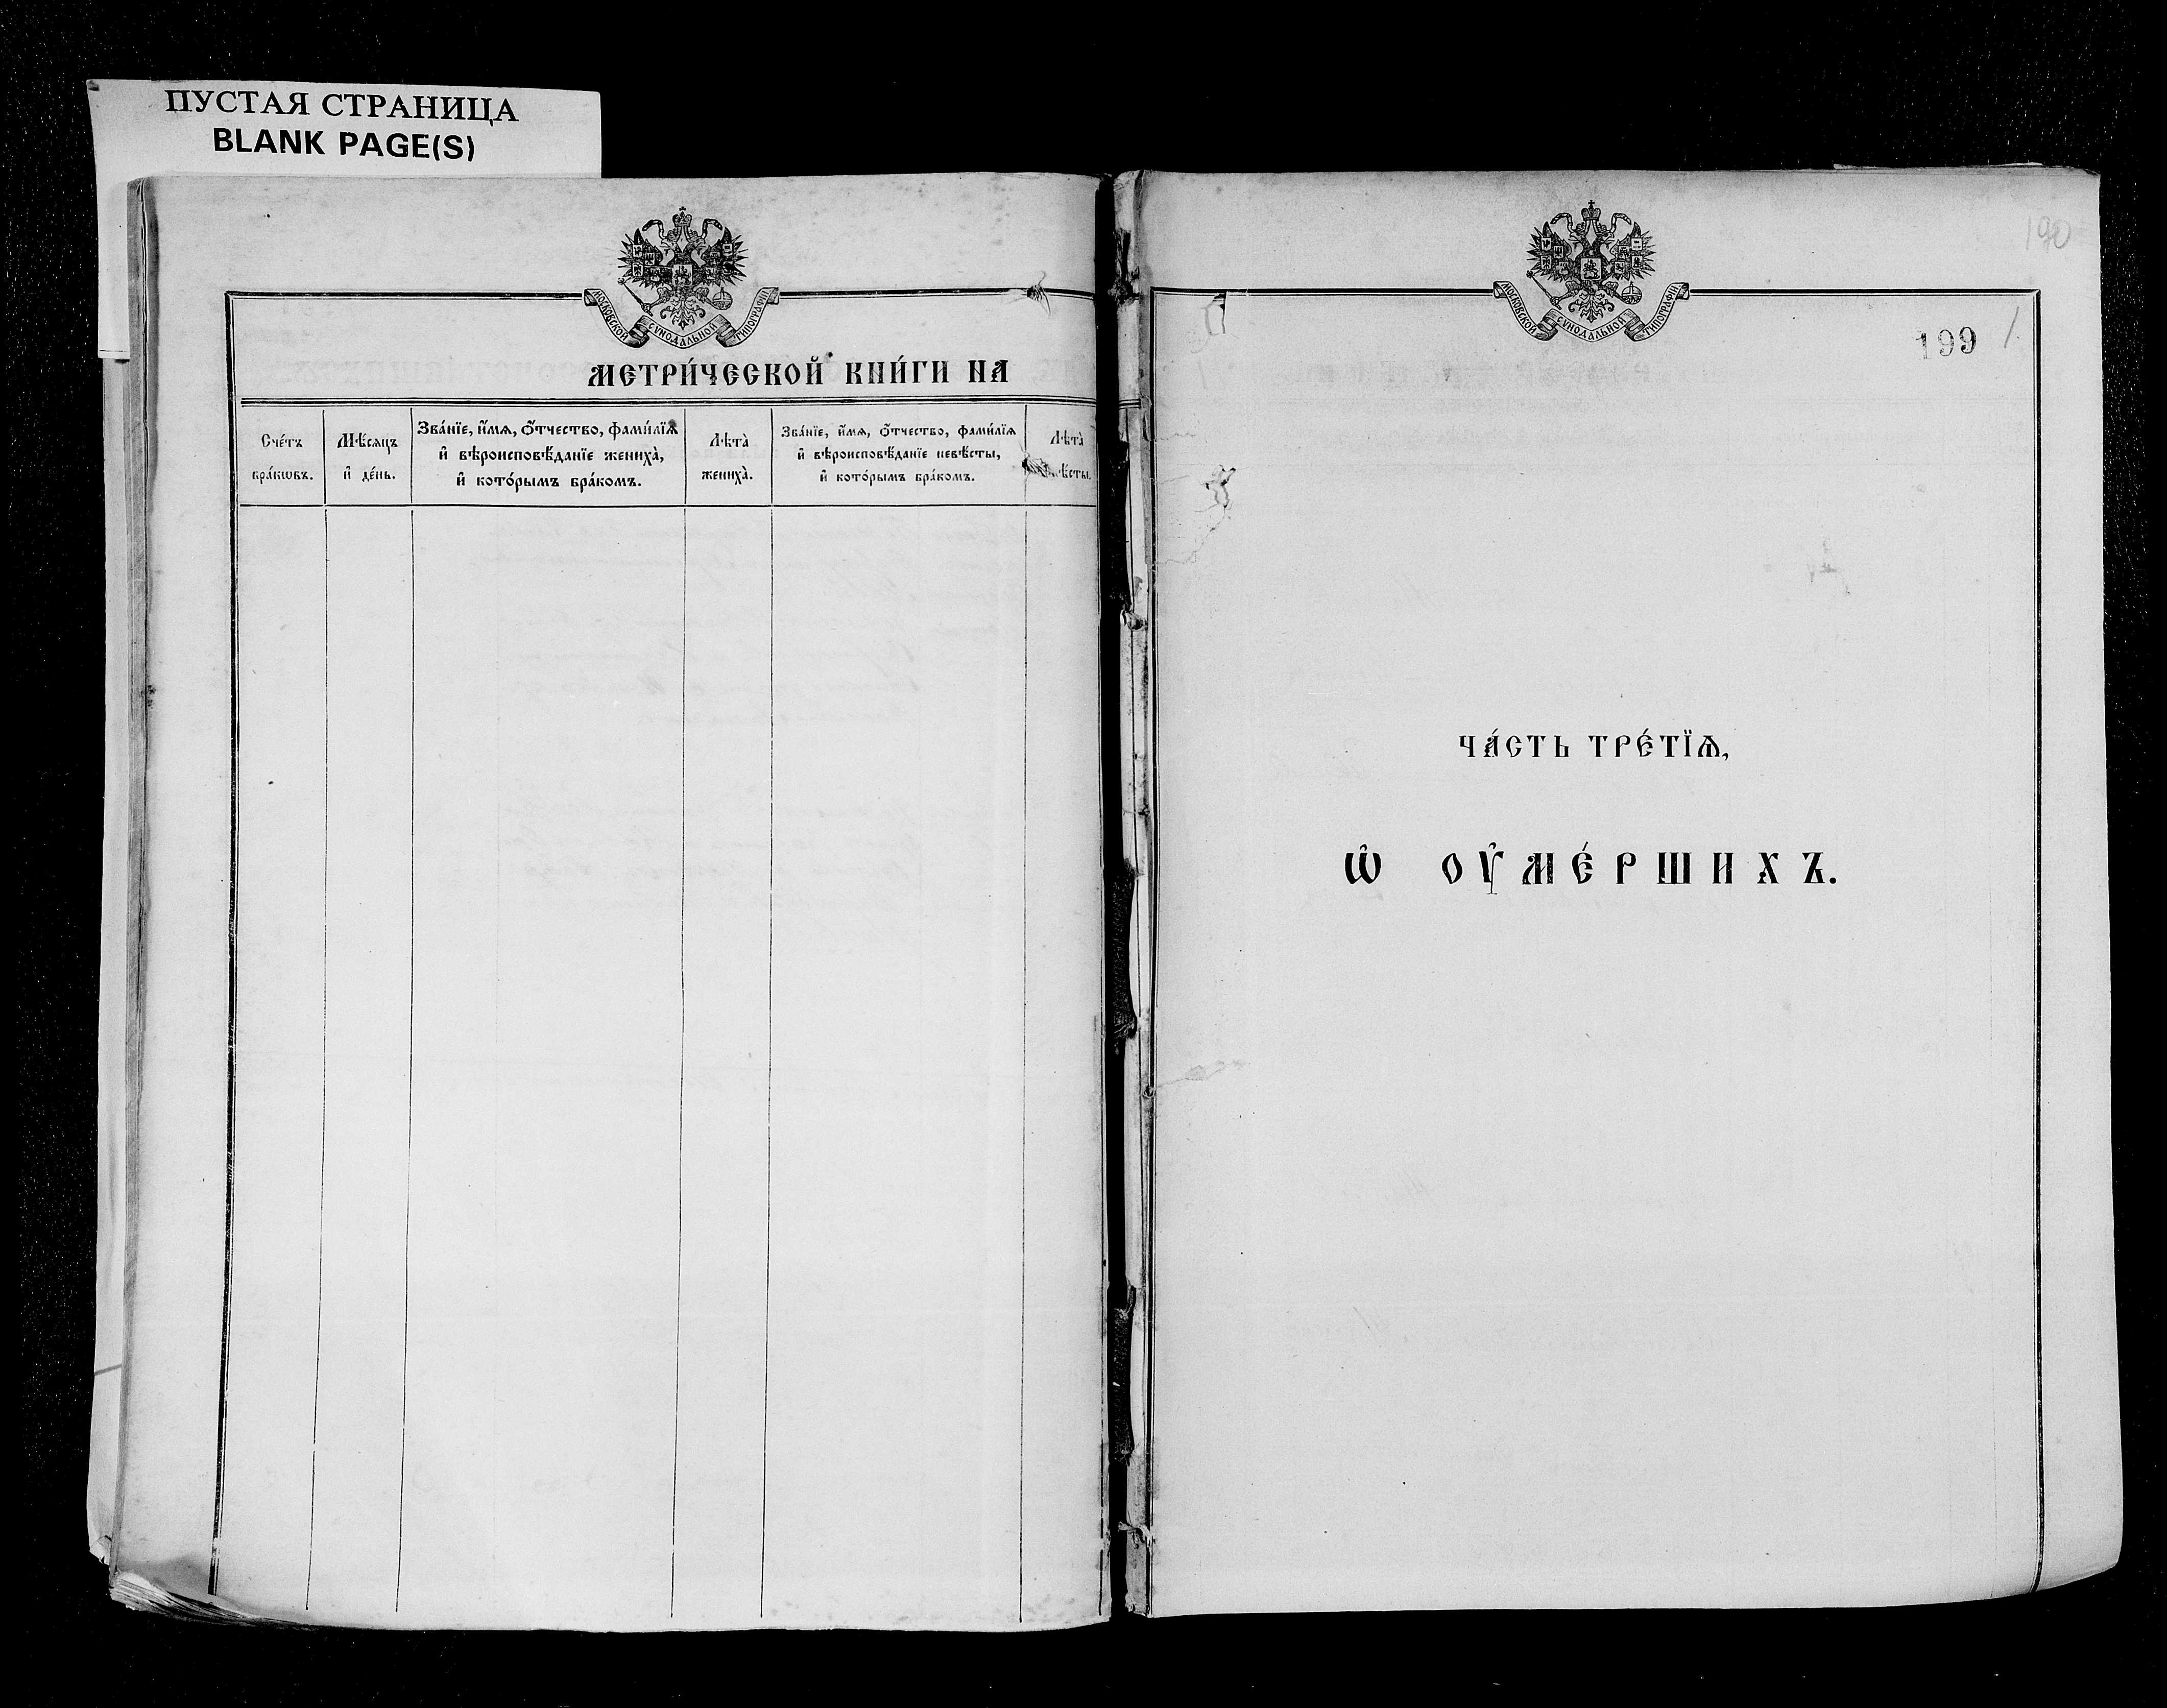 ПУСТАЯ СТРАНИЦА
BLANK PAGE(S)
МОСКОВСКОЙ СѴНОДАЛЬНОЙ ТИПОГРАФІИ
МЕТРИ́ЧЕСКОЙ КНИ́ГИ НА
Сче́тъ бра́кѡвъ.
Мѣ́сяцъ и҆ де́нь.
Зва́нїе, и҆́мѧ, ѻ҆́тчество, фами́лїѧ
и҆ вѣроисповѣ́данїе жениха̀,
и҆ кото́рымъ бра́комъ.
Лѣта̀ жениха̀.
Зва́нїе, и҆́мѧ, ѻ҆́тчество, фами́лїѧ
и҆ вѣроисповѣ́данїе невѣ́сты,
и҆ кото́рымъ бра́комъ.
Лѣта̀
ѣ́сты.
190
МОСКОВСКОЙ СѴНОДАЛЬНОЙ ТИПОГРАФІИ
199
ЧА́СТЬ ТРЕ́ТЇѦ,
Ѡ҆ ОУ҆МЕ́РШИХЪ.